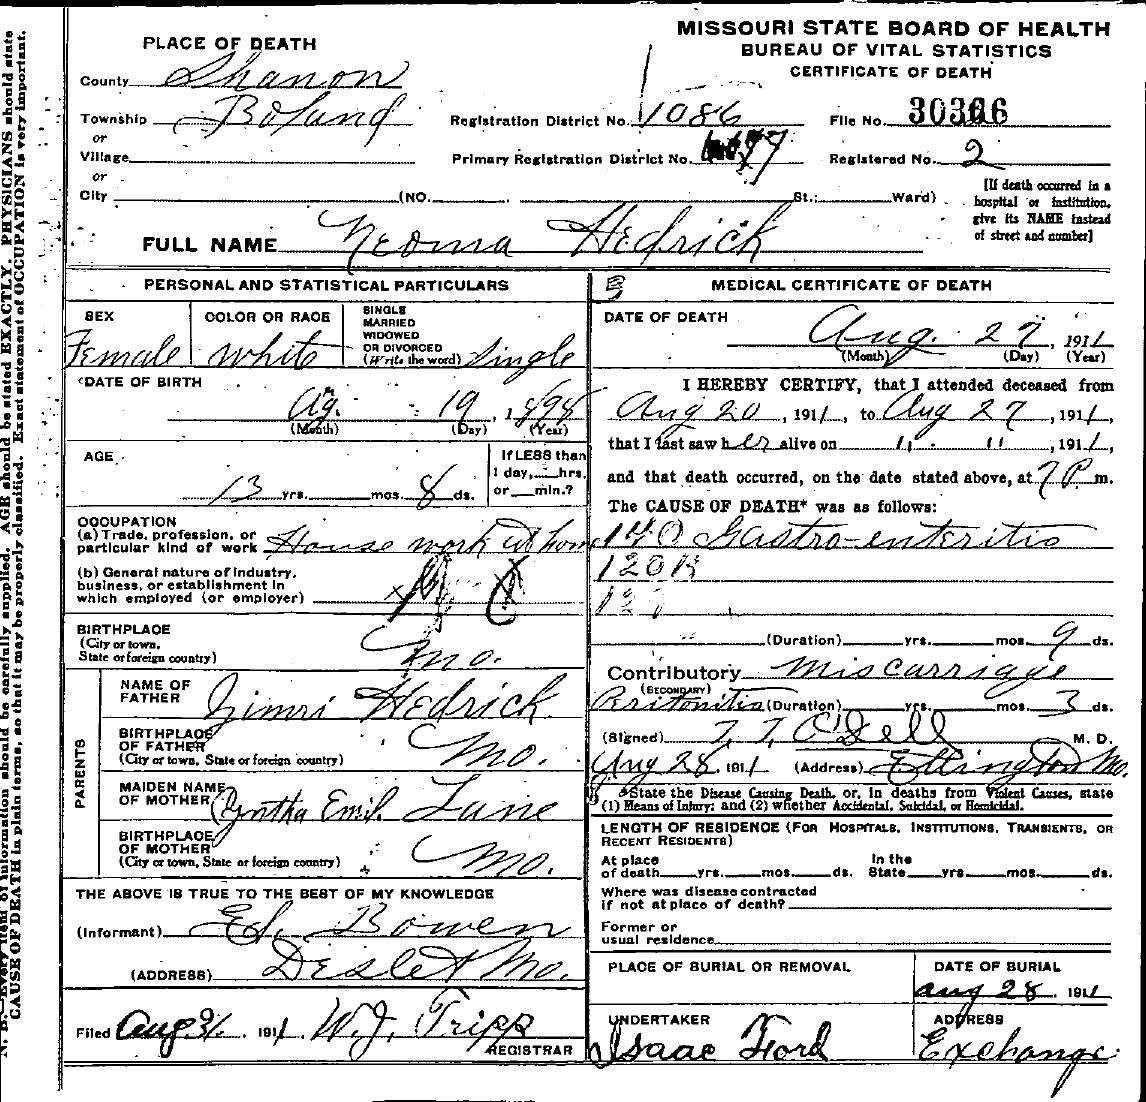 MISSOURI STATE BOARD OF HEALTH
BUREAU OF VITAL STATISTICS
CERTIFICATE OF DEATH
PLACE OF DEATH
County Shanon
Township Boland
or
Village
or
City (NO. St.; Ward)
Registration District No. 1086
File No. 30306
Primary Registration District No.
Registered No. 2
[If death occurred in a hospital or institution, give its NAME instead of street and number]
FULL NAME Neoma Hedrick
PERSONAL AND STATISTICAL PARTICULARS
SEX Female
COLOR OR RACE White
SINGLE MARRIED WIDOWED OR DIVORCED (Write the word) Single
DATE OF BIRTH
Ag. 19, 1898
(Month) (Day) (Year)
AGE
13 yrs. mos. 8 ds.
If LESS than 1 day, hrs. or min.?
OCCUPATION
(a) Trade, profession, or particular kind of work House work at home
(b) General nature of Industry, business, or establishment in which employed (or employer)
BIRTHPLACE
(City or town, State or foreign country) Mo.
PARENTS
NAME OF FATHER Zimri Hedrick
BIRTHPLACE OF FATHER
(City or town, State or foreign country) Mo.
MAIDEN NAME OF MOTHER Cyntha Emil. Lane
BIRTHPLACE OF MOTHER
(City or town, State or foreign country) Mo.
THE ABOVE IS TRUE TO THE BEST OF MY KNOWLEDGE
(Informant) Ed. Bowen
(ADDRESS) Deslet Mo.
Filed Aug 31 1911 W. J. Tripp
REGISTRAR
MEDICAL CERTIFICATE OF DEATH
DATE OF DEATH
Aug. 27, 1911
(Month) (Day) (Year)
I HEREBY CERTIFY, that I attended deceased from
Aug 20, 1911, to Aug 27, 1911,
that I last saw her alive on 11 11, 1911,
and that death occurred, on the date stated above, at 7 P m.
The CAUSE OF DEATH* was as follows:
140 Gastro-enteritis
120B
(Duration) yrs. mos. 9 ds.
Contributory Miscarriage
(SECONDARY)
Peritonitis (Duration) yrs. mos. 3 ds.
(Signed) T. T. O'Dell M. D.
Aug 28, 1911 (Address) Ellington Mo.
*State the Disease Causing Death, or, in deaths from Violent Causes, state
(1) Means of Injury; and (2) whether Accidental, Suicidal, or Homicidal.
LENGTH OF RESIDENCE (FOR HOSPITALS, INSTITUTIONS, TRANSIENTS, OR RECENT RESIDENTS)
At place of death yrs. mos. ds. In the State yrs. mos. ds.
Where was disease contracted
if not at place of death?
Former or
usual residence
PLACE OF BURIAL OR REMOVAL
DATE OF BURIAL
Aug 28, 1911
UNDERTAKER
Isaac Ford
ADDRESS
Exchange
N. B.—Every item of information should be carefully supplied. AGE should be stated EXACTLY. PHYSICIANS should state
CAUSE OF DEATH in plain terms, so that it may be properly classified. Exact statement of OCCUPATION is very important.